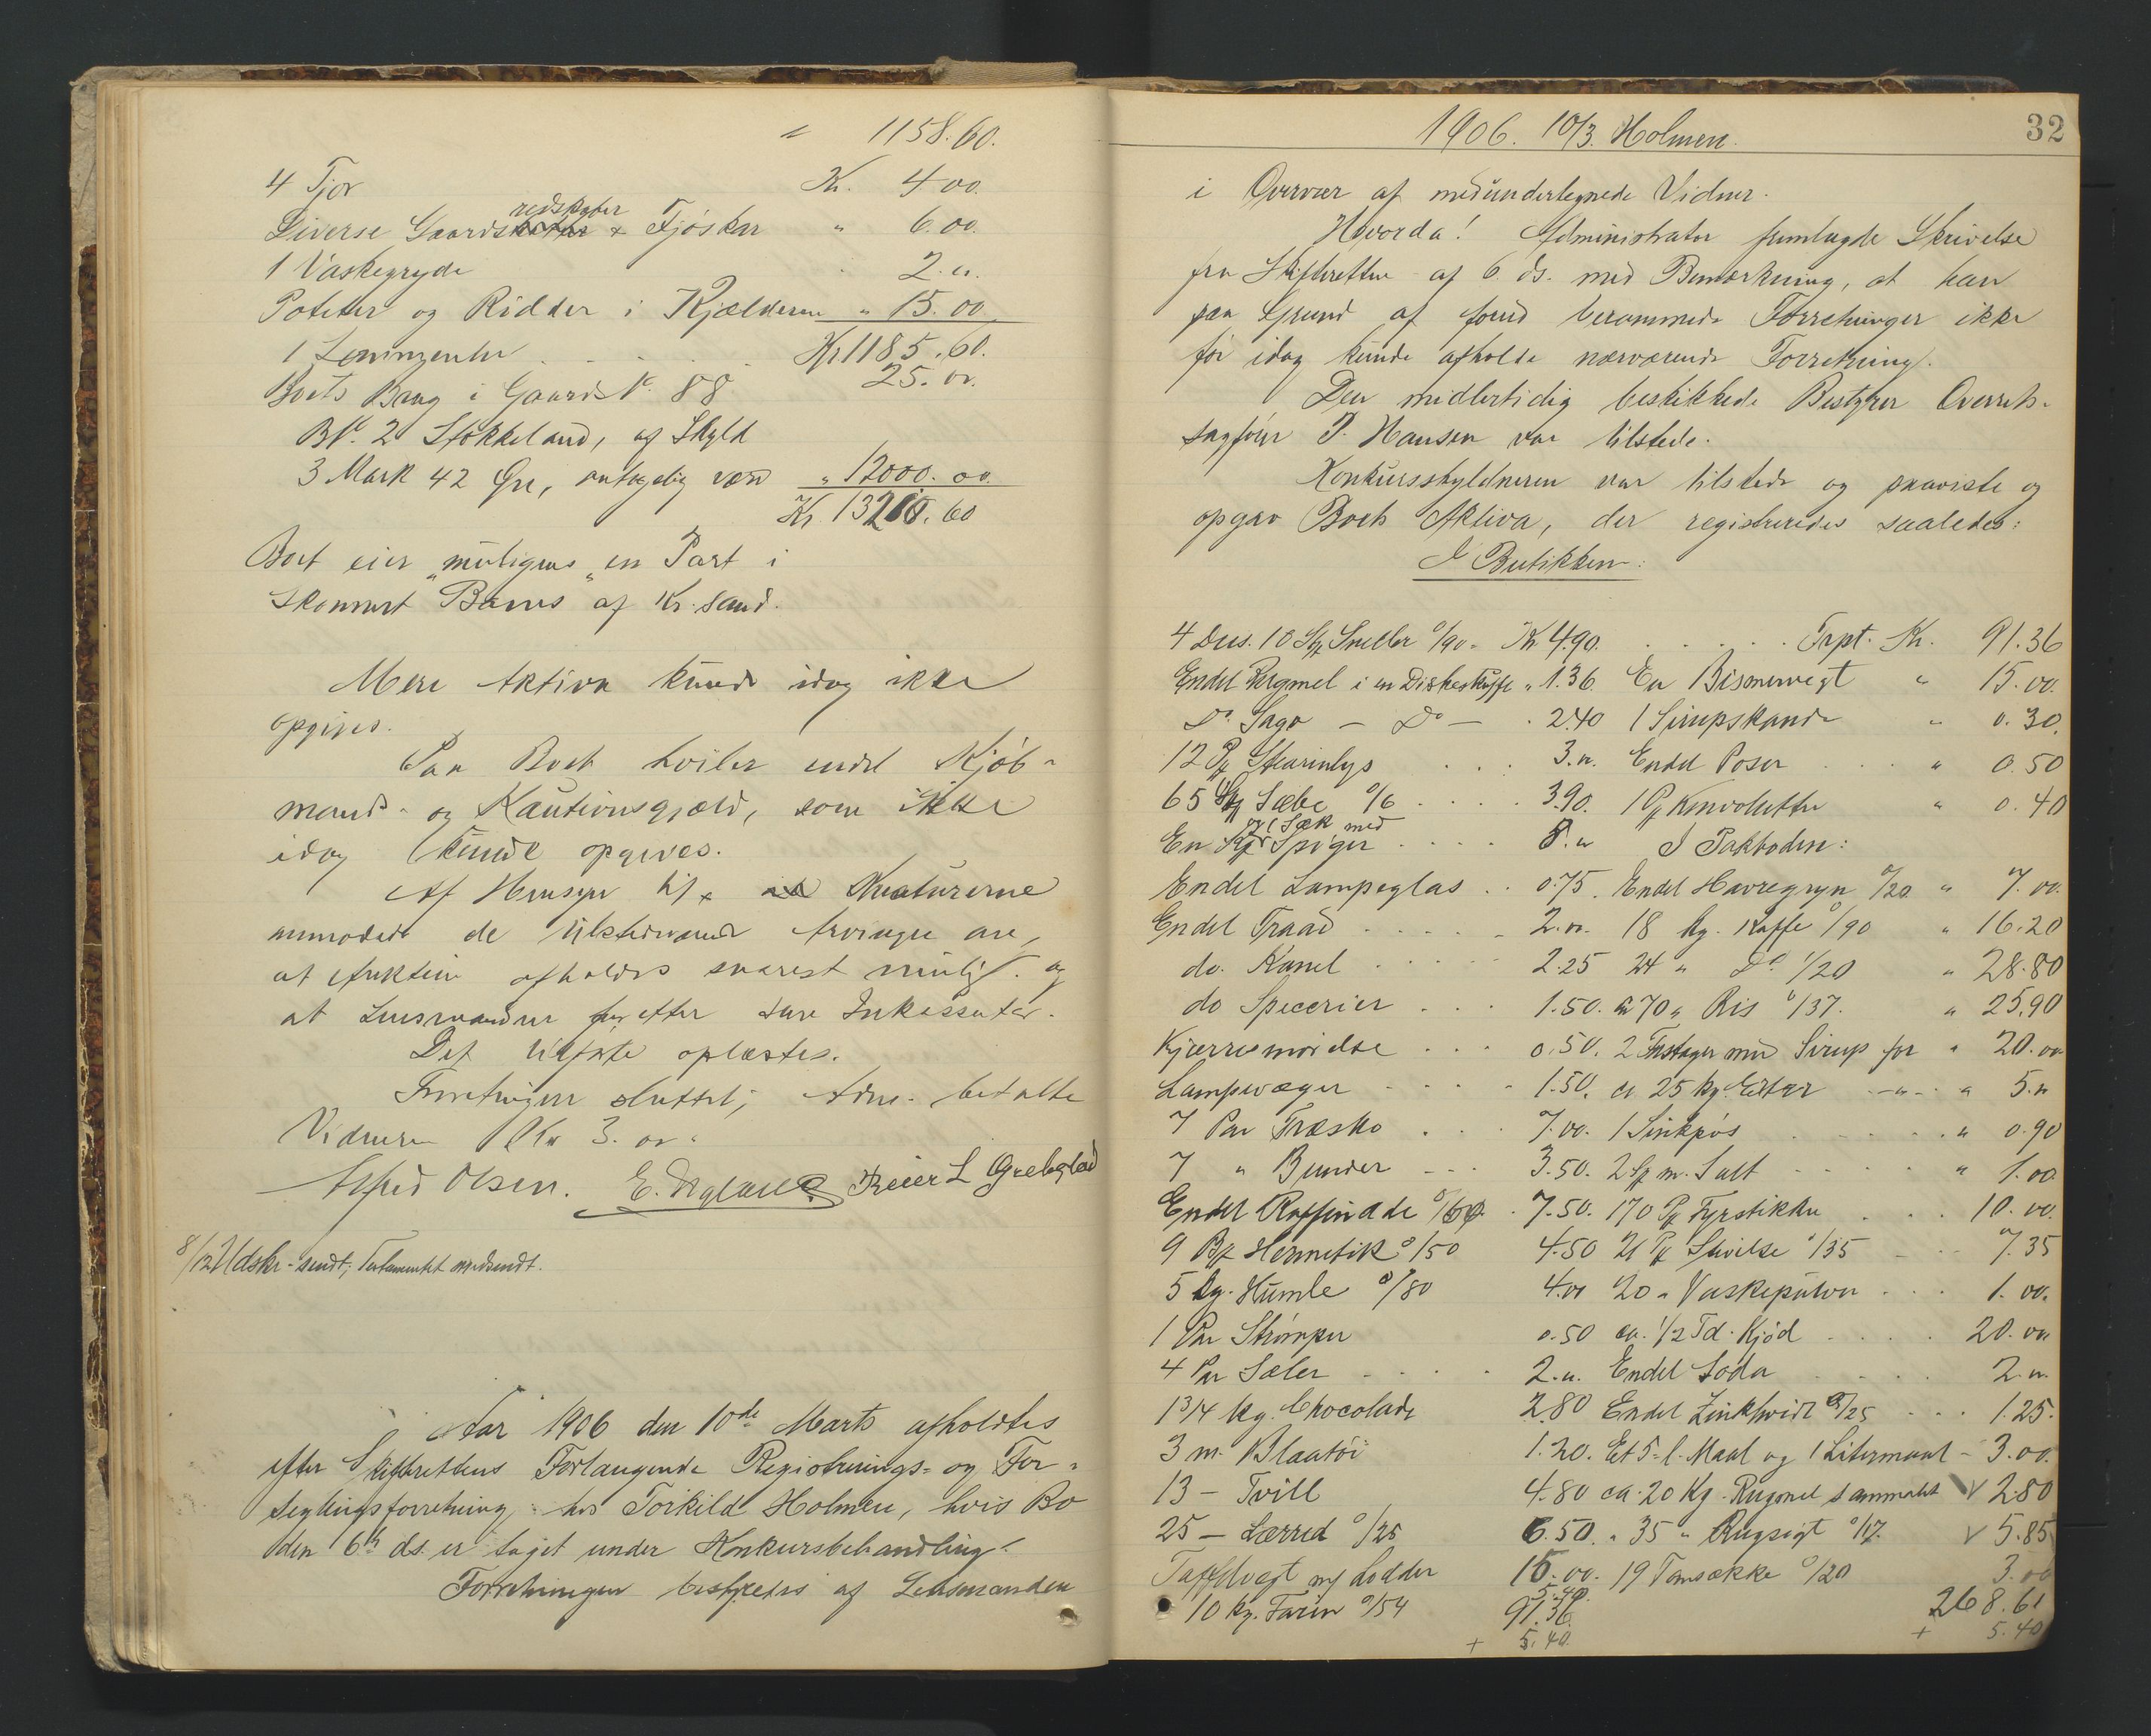 " 1158.60.
4 Tjor Kr. 4 00.
redskaber
Diverse Gaards & Fjøskar " 6.00.
1 Vaskegryde 2. "
Poteter og Rødder i Kjælderen " 15.00
1 Kr 1185.60.
25. 00.
Boets Brug i Gaards N. 88
BN. 2 Stokkeland, af Skyld
3 Mark 42 Øre, antagelig værd " 12000.00.
Kr. 13210.60
Boet eier "muligens" en Part i
Skonnert "Barus" af Kr. sand.
Mere Aktiva kunde idag ikke
opgives.
Paa Boet hviler endel Kjøb-
mands- og Kautionsgjæld, som ikke
idag kunde opgives.
Af Hensyn til Kreaturerne
anmodede de tilstedeværende Arvinger om,
at Auktion afholdes snarest mulig og
at Lensmanden forretter som Inkassator.
Det tilførte oplæstes.
Forretningen sluttet; Adm. betalte
Vidnerne Kr 3.00.
Alfred Olsen. E. Reier L Grebstad
8/12 Udskr. sendt; Testamentet medsendt.
Aar 1906 den 10de Marts afholdtes
efter Skifterettens Forlangende Registrerings- og For-
seglingsforretning hos Torkild Holmen, hvis Bo
den 6te ds. er taget under Konkursbehandling.
Forretningen bestyredes af Lensmanden
1906. 10/3. Holmen. 32
i Overvær af medundertegnede Vidner.
Hvorda! Administrator fremlagde Skrivelse
fra Skifteretten af 6. ds. med Bemærkning, at han
paa Grund af forud berammede Forretninger ikke
før idag kunde afholde nærværende Forretning.
Den midlertidig beskikkede Bestyrer Overrets-
sagfører P. Hansen var tilstede.
Konkursskyldneren var tilstede og paaviste og
opgav Boets Aktiva, der registreredes saaledes:
I Butikken:
4 Dus. 10 Stk Sneller 0/90 - Kr 4.90. . . . . . Trpt. Kr. 91.36
Endel Rugmel i en Diskeskuffe " 1.36. En Bismervegt " 15.00.
Do Sago - Do - . 2.40 1 Sirupskande " 0.30.
12 Pk Stearinlys . . . 3. " Endel Poser . . . " 0.50
65 Stk Sæbe 0/6 . . . . 3.90. 1 Pk Konvolutter " 0.40
og 1 Sæk med
En Kg Spiger . . . . 8. " I Pakboden:
Endel Lampeglas . . 0.75. Endel Havregryn 0/20 " 7.00.
Endel Traad . . . . . 2.00. 18 kg. Kaffe 0/90 " 16.20
do. Kanel . . . . . 2.25 24 " Do 1/20 " 28.80
do Specerier . . . 1.50. ca 70 " Ris 0/37. " 25.90
Kjærresmørelse . . . 0.50. 2 Fustager med Sirup for " 20.00
Lampevæger . . . . 1.50. ca 25 kg. Erter -"- . " 5. "
7 Par Træsko . . . 7.00. 1 Sinkpøs . . . . . " 0.90
7 " Bunder - - - 3.50. 2 Sk m. Salt - - - - - " 1.00
Endel Raffinade 0/60. . 7.50. 170 Pk Fyrstikker . . . 10.00.
9 Bx Hermetik 0/50 4.50 21 Pk Stivelse 0/35 - - - 7.35
5 kg. Humle 0/80 4.00 20 " Vaskepulver . . . 1.00.
1 Par Strømper 0.50 ca. 1/2 Td. Kjød . . . . 20.00
4 Par Seler . . . . 2. ". Endel Soda . . . . . 2. ".
1 3/4 kg. Chocolade 2.80 Endel Zinkhvidt 0/25 . . . 1.25.
3 m. Blaatøi 1.20. Et 5-l. Maal og 1 Litermaal - 3.00.
13 - Tvill 4.80 ca. 20 Kg. Rugmel sammalt V 2.80
25 - Lærred 0/25 6.50. " 35 " Rugsigt 0/17. V 5.85
Taffelvegt m/ Lodder 15.00. 19 Tomsække 0/20 3.00
5.40.
10 kg. Farin 0/54 91.36. 268.61
+ 5.40. + 5.40